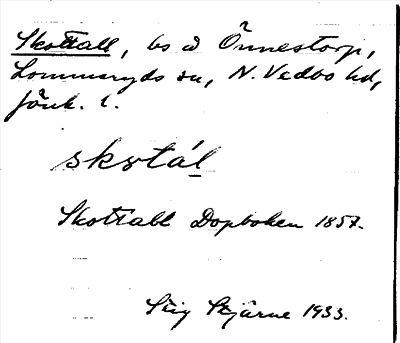 Skottall, bs å Önnestorp,
Lommaryds sn, N. Vedbo hd,
Jönk. l.
skɷtál
Skottall Dopboken 1857.
Stig Stjärne 1933.